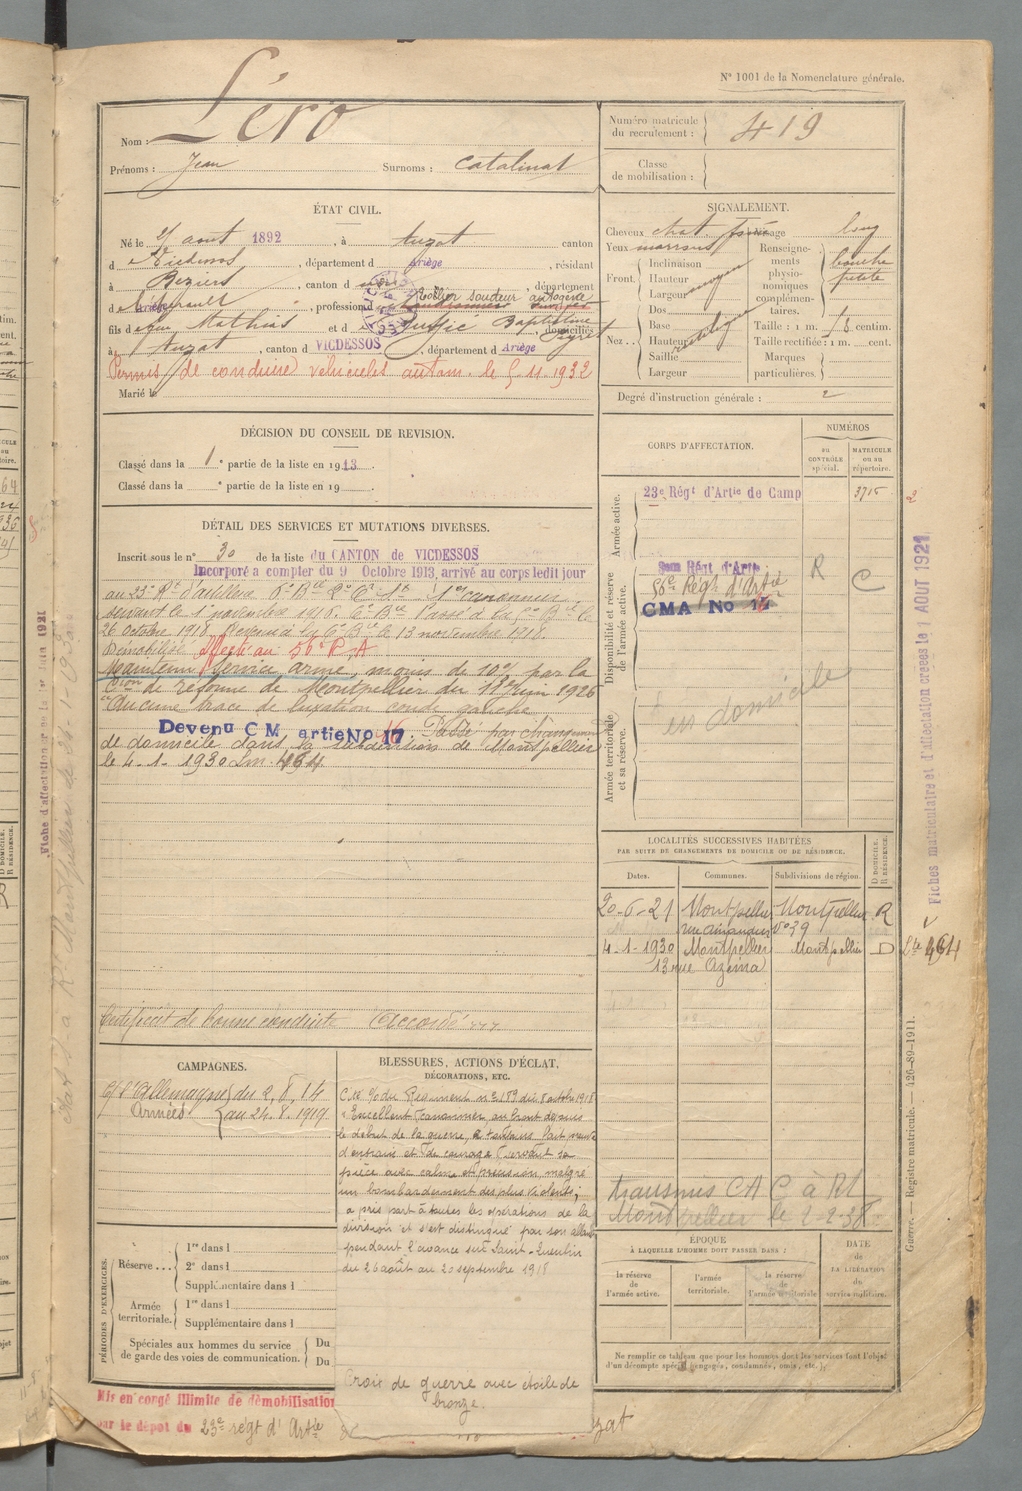 N° 1001 de la Nomenclature générale.
Nom : Léro
Prénoms : Jean Surnoms : Catalinat
Numéro matricule du recrutement : 419
Classe de mobilisation :
ÉTAT CIVIL.
Né le août 1892, à Auzat canton
d Vicdessos, département d Ariège, résidant
à Béziers, canton d , département
d Hérault, profession d soudeur autogène
fils d feu Mathias et d Baptistine domiciliés
à Auzat, canton d VICDESSOS, département d Ariège
Permis de conduire véhicules autom. le 5.11.1932
Marié le
SIGNALEMENT.
Cheveux chat foncé Visage long
Yeux marrons
Front Inclinaison Hauteur Largeur moyen
Nez Dos Base Hauteur Saillie Largeur rectiligne
Renseignements physionomiques complémentaires. bouche petite
Taille : 1 m. 78 centim.
Taille rectifiée : 1 m. cent.
Marques particulières.
Degré d'instruction générale : 2
DÉCISION DU CONSEIL DE REVISION.
Classé dans la 1e partie de la liste en 1913.
Classé dans la e partie de la liste en 19
DÉTAIL DES SERVICES ET MUTATIONS DIVERSES.
Inscrit sous le n° 30 de la liste du CANTON de VICDESSOS
Incorporé a compter du 9 Octobre 1913, arrivé au corps ledit jour
au 23e Rt d'artillerie 1er canonnier
servant le 1er novembre 1918. 6e Bie Passé à la Bie le
26 octobre 1918. Revenu à la 6e Bie le 13 novembre 1918.
Démobilisé Affecté au 56e R.A
Maintenu Service armé, moins de 10% par la
Cion de réforme de Montpellier du 11 Juin 1926
"Aucune trace de luxation coude gauche
Devenu C M artie No 16. Passé par changement
de domicile dans la subdivision de Montpellier
le 4-1-1930 434
Certificat de bonne conduite Accordé
CORPS D'AFFECTATION.
NUMÉROS
au CONTRÔLE spécial.
MATRICULE ou au répertoire.
Armée active.
23e Régt d'Artie de Camp 3715
Disponibilité et réserve de l'armée active.
56e Régt d'Artie R C
CMA No 16
Armée territoriale et sa réserve.
en domicile
LOCALITÉS SUCCESSIVES HABITÉES
PAR SUITE DE CHANGEMENTS DE DOMICILE OU DE RÉSIDENCE.
D DOMICILE. R RÉSIDENCE.
Dates. Communes. Subdivisions de région.
20-6-21 Montpellier Montpellier R
rue N° 39
4-1-1930 Montpellier Montpellier D
13 rue Azéma
transmis CA C à Rt
Montpellier le 2-2-38
CAMPAGNES.
c/ l'Allemagne du 2.8.14
Armées au 24.8.1919.
BLESSURES, ACTIONS D'ÉCLAT, DÉCORATIONS, ETC.
Cité o/ du Régiment n° 189 du 8 octobre 1918
"Excellent canonnier, au front depuis
le début de la guerre, a toujours fait preuve
d'entrain et de courage servant sa
pièce avec calme et précision malgré
un bombardement des plus violents;
a pris part à toutes les opérations de la
division et s'est distingué par son allant
pendant l'avance sur Saint-Quentin
du 26 août au 20 septembre 1918
Croix de guerre avec étoile de
bronze.
PÉRIODES D'EXERCICES.
Réserve... 1re dans l
2e dans l
Supplémentaire dans l
Armée territoriale. 1re dans l
Supplémentaire dans l
Spéciales aux hommes du service de garde des voies de communication. Du
Du
ÉPOQUE
À LAQUELLE L'HOMME DOIT PASSER DANS :
la réserve de l'armée active.
l'armée territoriale.
la réserve de l'armée territoriale
DATE de LA LIBÉRATION du service militaire.
Ne remplir ce tableau que pour les hommes dont les services font l'objet
d'un décompte spécial (engagés, condamnés, omis, etc.).
Mis en congé illimité de démobilisation
par le dépôt du 23e régt d'Artie
zat
Fiches matriculaire et d'affectation créées le 1 AOUT 1921
Guerre. — Registre matricule. — 426-89-1911.